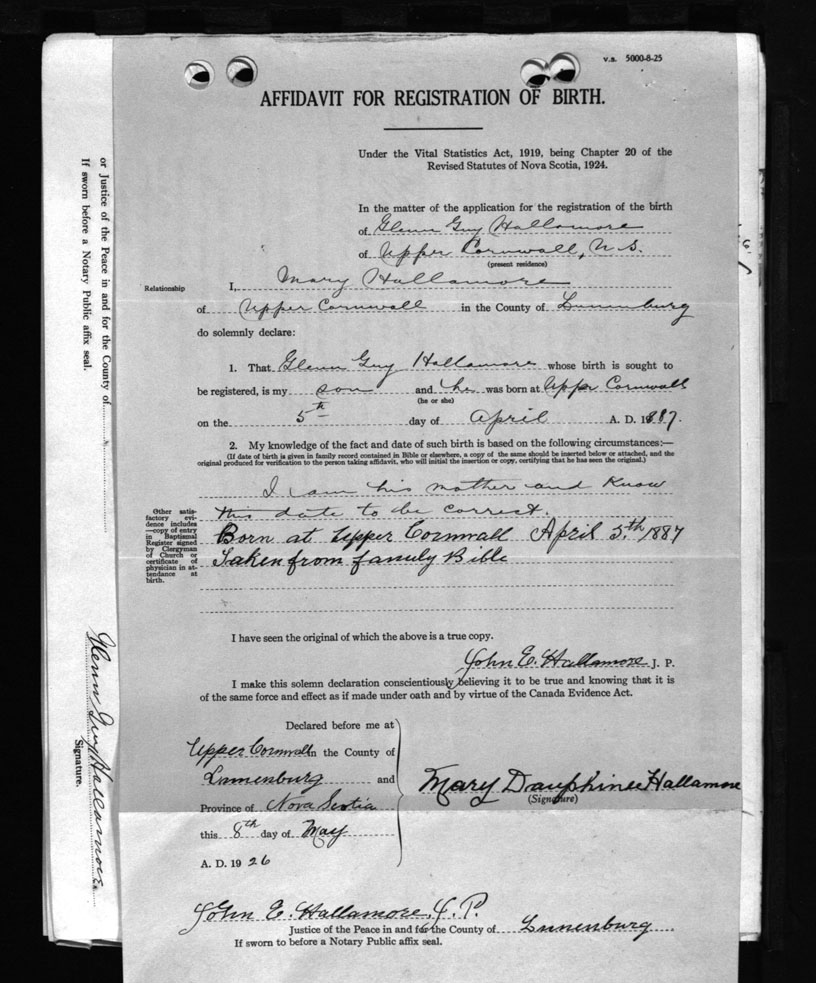 v.s. 5000-8-25
AFFIDAVIT FOR REGISTRATION OF BIRTH.
Under the Vital Statistics Act, 1919, being Chapter 20 of the
Revised Statutes of Nova Scotia, 1924.
In the matter of the application for the registration of the birth
of Glenn Guy Hallamore
of Upper Cornwall, N.S.
(present residence)
Relationship
I, Mary Hallamore
of Upper Cornwall in the County of Lunenburg
do solemnly declare:
1. That Glenn Guy Hallamore whose birth is sought to
be registered, is my son and he was born at Upper Cornwall
(he or she)
on the 5th day of April A. D. 1887.
2. My knowledge of the fact and date of such birth is based on the following circumstances:—
(If date of birth is given in family record contained in Bible or elsewhere, a copy of the same should be inserted below or attached, and the
original produced for verification to the person taking affidavit, who will initial the insertion or copy, certifying that he has seen the original.)
I am his mother and know
this date to be correct.
Born at Upper Cornwall April 5.th/1887
Taken from family Bible
Other satis-
factory evi-
dence includes
—copy of entry
in Baptismal
Register signed
by Clergyman
of Church or
certificate of
physician in at-
tendance at
birth.
I have seen the original of which the above is a true copy.
John E. Hallamore J. P.
I make this solemn declaration conscientiously believing it to be true and knowing that it is
of the same force and effect as if made under oath and by virtue of the Canada Evidence Act.
Declared before me at
Upper Cornwall in the County of
Lunenburg and
Province of Nova Scotia
this 8th day of May
A. D. 1926
Mary Dauphinee Hallamore
(Signature)
John E. Hallamore, J. P.
Justice of the Peace in and for the County of Lunenburg
If sworn to before a Notary Public affix seal.
or Justice of the Peace in and for the County of
If sworn before a Notary Public affix seal.
Glenn Guy Hallamore
Signature.